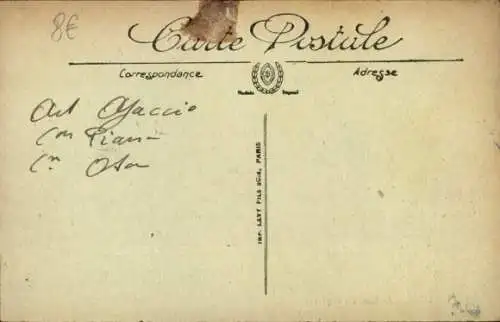 8€
Carte Postale
Correspondance
Adresse
Modèle Déposé
Art Ajaccio
Con Piana
Cne Ota
IMP. LEVY FILS & Cie, PARIS